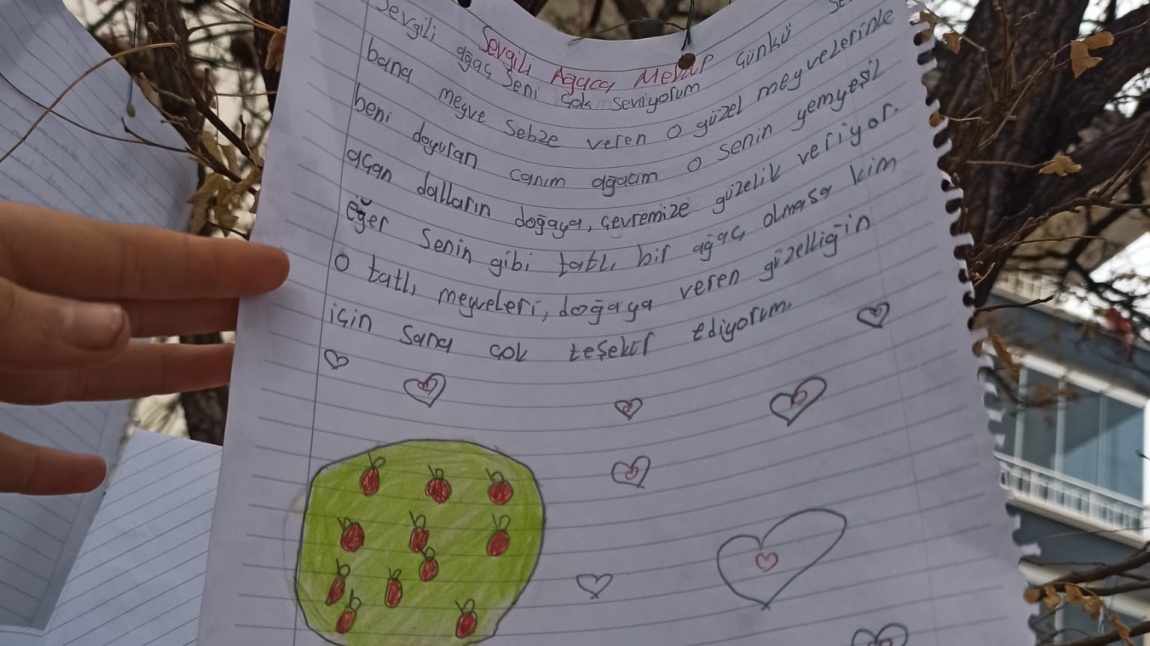 Sevgili Ağaca Mektup
Sevgili ağaç seni çok seviyorum Çünkü
bana meyve sebze veren o güzel meyvelerinle
beni doyuran canım ağacım o senin yemyeşil
açan dalların doğaya, çevremize güzelik veriyor.
eğer senin gibi tatlı bir ağaç olmasa kim
o tatlı meyveleri, doğaya veren güzelliğin
için sana çok teşekür ediyorum.